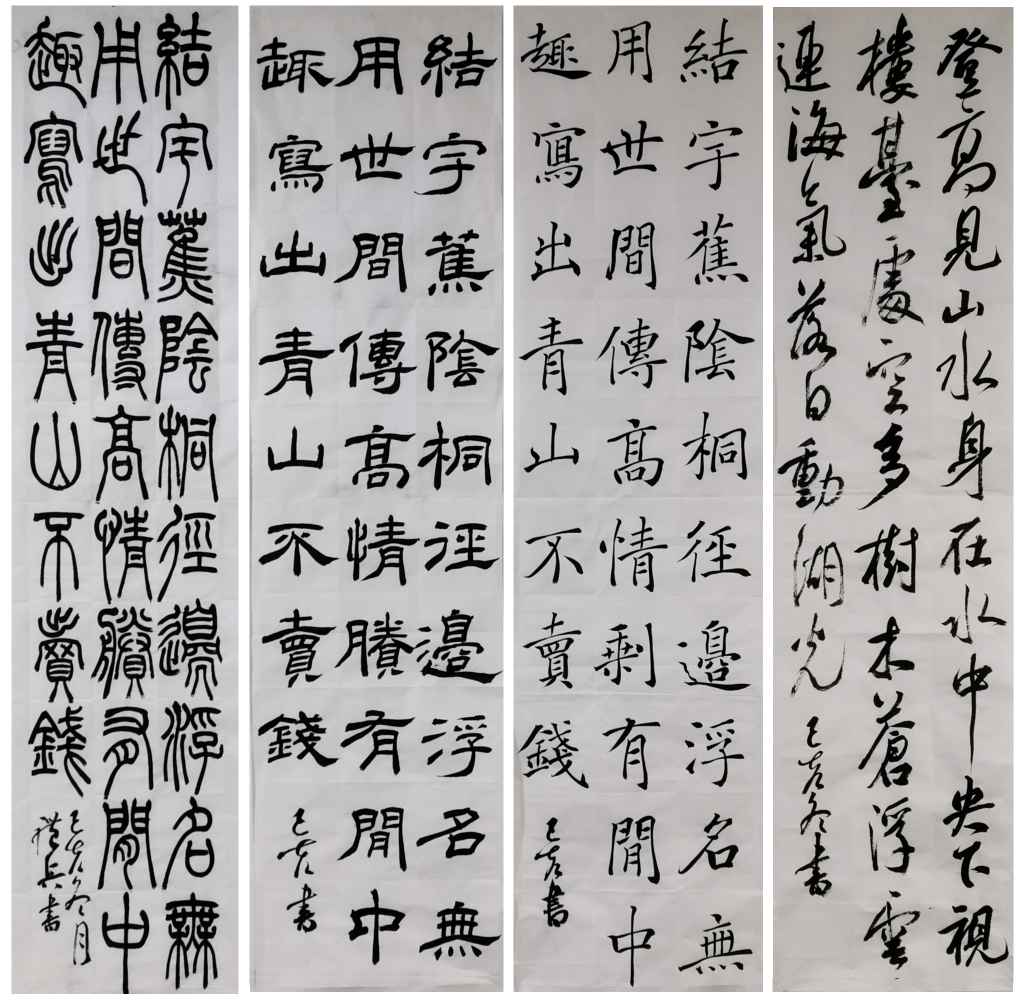 登高見山水身在水中央下視
樓臺處空多樹木蒼浮雲
連海氣落日動湖光
己亥冬書
結宇蕉陰桐徑邊浮名無
用世間傳高情剩有閒中
趣寫出青山不賣錢
己亥書
結宇蕉陰桐徑邊浮名無
用世間傳高情賸有閒中
趣寫出青山不賣錢
己亥書
結宇蕉陰桐徑邊浮名無
用世間傳高情賸有閒中
趣寫出青山不賣錢
己亥冬月
禮兵書